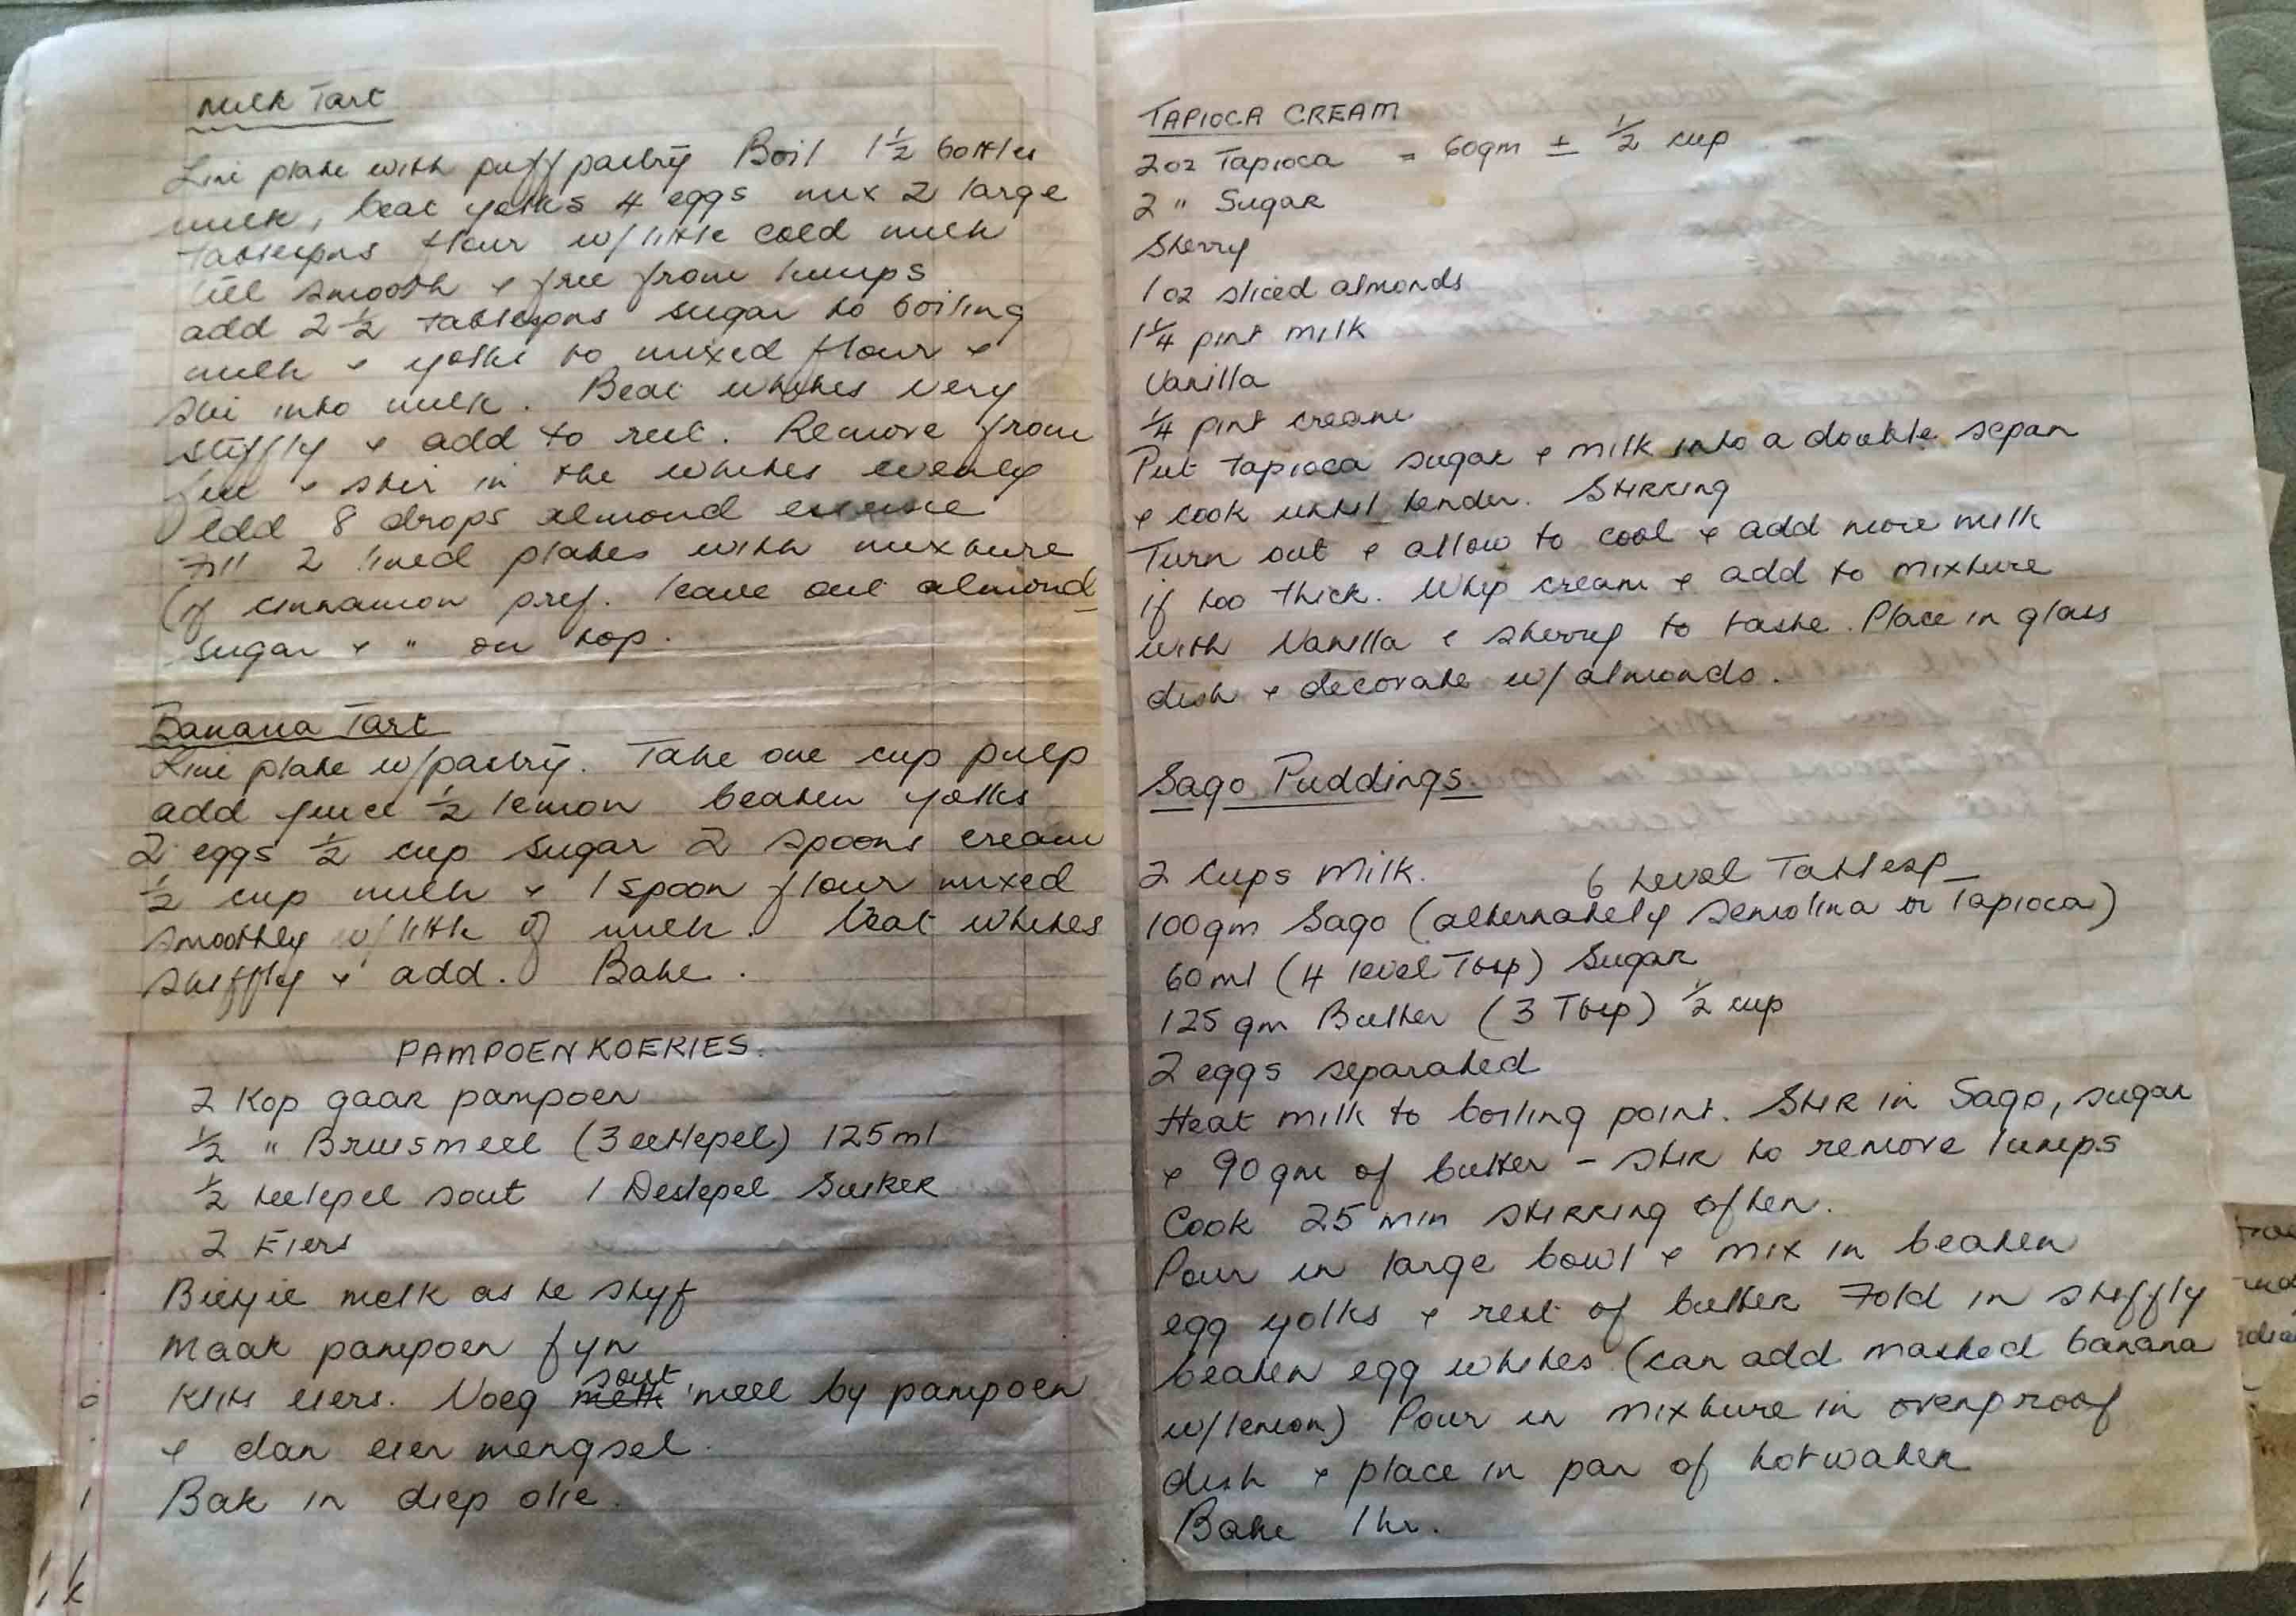 Milk Tart
Line plate with puff pastry Boil 1½ bottles
milk, beat yolks 4 eggs mix 2 large
tablespns flour w/ little cold milk
till smooth + free from lumps
add 2½ tablespns sugar to boiling
milk + yolks to mixed flour +
stir into milk. Beat whites very
stiffly + add to rest. Remove from
fire + stir in the whites evenly
Add 8 drops almond essence
Fill 2 lined plates with mixture
(if cinnamon pref. leave out almond
sugar + " on top.
Banana Tart
Line plate w/pastry. Take one cup pulp
add juice ½ lemon beaten yolks
2 eggs ½ cup sugar 2 spoons cream
½ cup milk + 1 spoon flour mixed
smoothly w/little of milk. beat whites
stiffly + add. Bake.
PAMPOENKOERIES.
2 Kop gaar pampoen
½ " Bruismeel (3 eetlepel) 125ml
½ teelepel sout 1 Deslepel Suiker
2 Eiers
Bietjie melk as te styf
Maak pampoen fyn
sout
Klits eiers. Voeg melk meel by pampoen
+ dan eier mengsel.
Bak in diep olie.
TAPIOCA CREAM
2oz Tapioca = 60gm ± ½ cup
2 " Sugar
Sherry
1 oz sliced almonds
1¼ pint milk
Vanilla
¼ pint cream
Put tapioca sugar + milk into a double sepan
+ cook until tender. Stirring
Turn out + allow to cool + add more milk
if too thick. Whip cream + add to mixture
with Vanilla + sherry to taste. Place in glass
dish + decorate w/ almonds.
Sago Puddings.
2 Cups Milk. 6 Level Tablesp
100gm Sago (alternately semolina or Tapioca)
60ml (4 level Tbsp) Sugar
125 gm Butter (3 Tbsp) ½ cup
2 eggs separated
Heat milk to boiling point. Stir in Sago, sugar
+ 90gm of butter - stir to remove lumps
Cook 25 min stirring often.
Pour in large bowl + mix in beaten
egg yolks + rest of butter Fold in stiffly
beaten egg whites (can add mashed banana
w/lemon) Pour in mixture in ovenproof
dish + place in pan of hotwater
Bake 1hr.